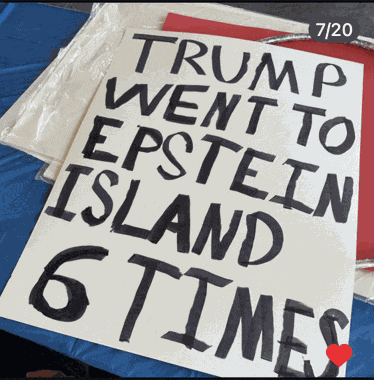 7/20
TRUMP
WENT TO
EPSTEIN
ISLAND
6 TIMES